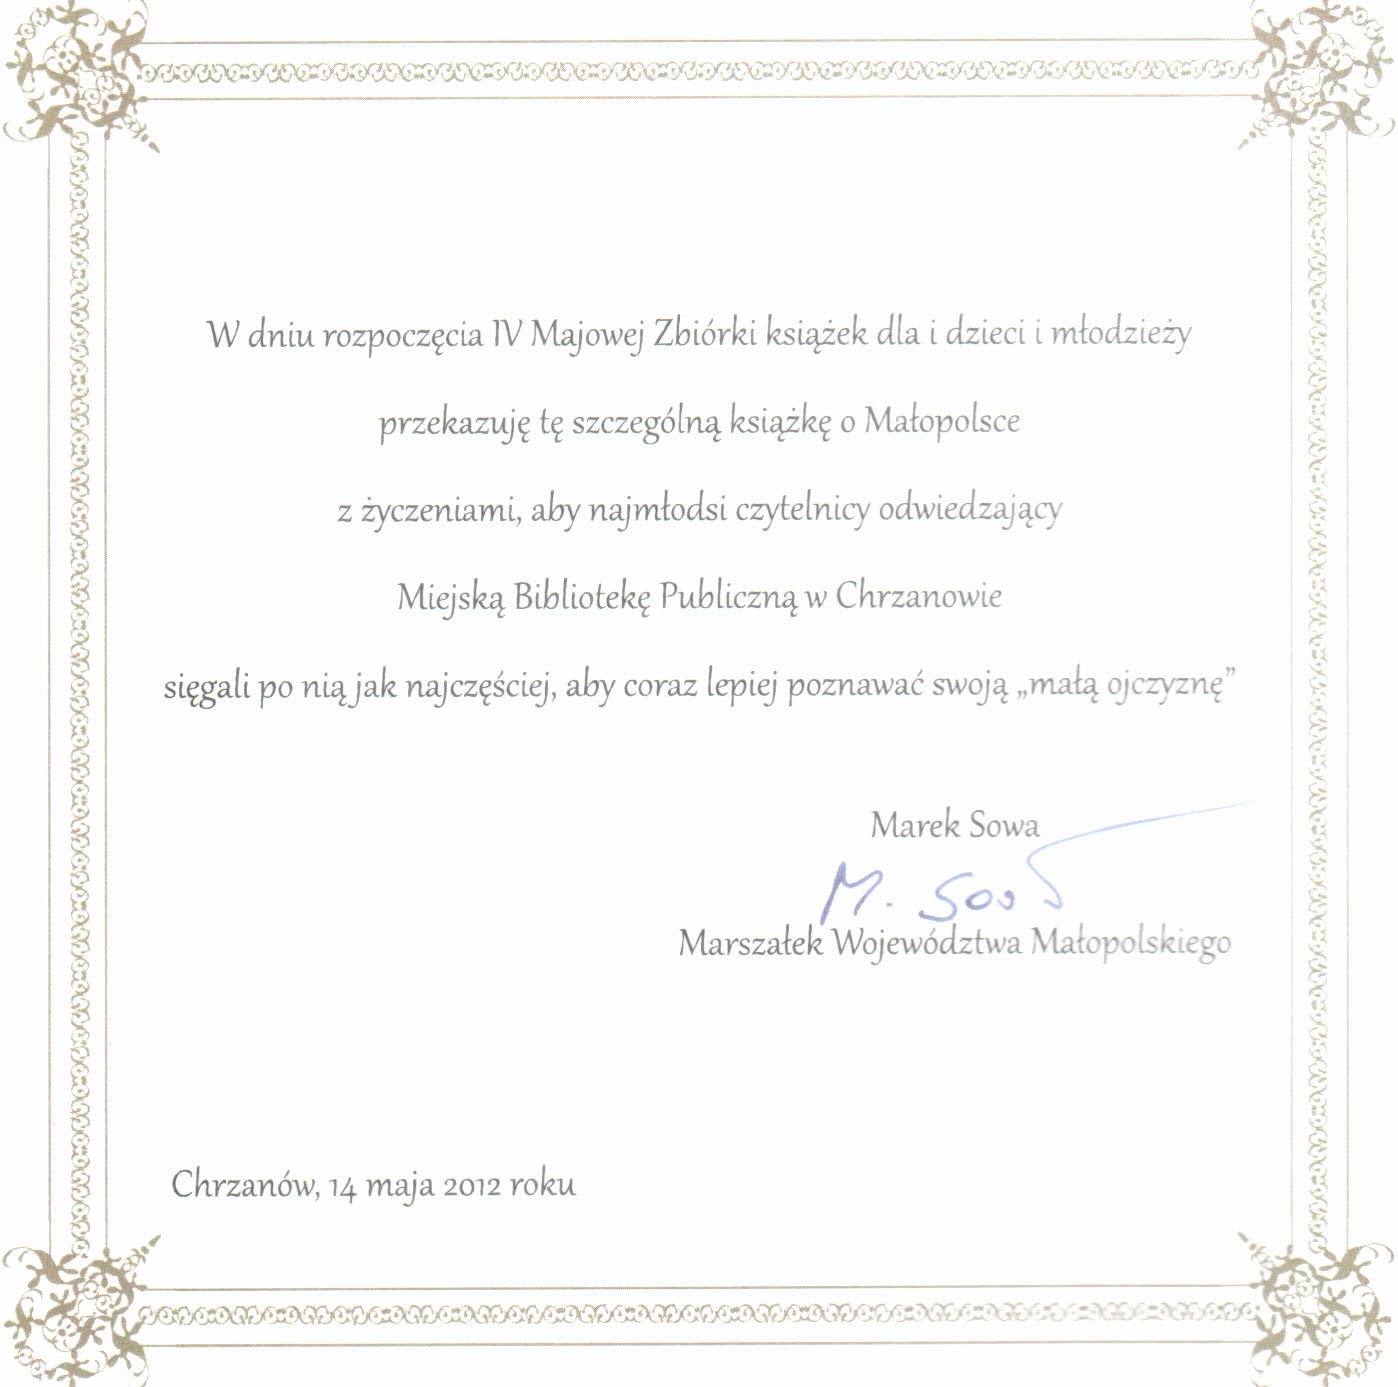 W dniu rozpoczęcia IV Majowej Zbiórki książek dla i dzieci i młodzieży
przekazuję tę szczególną książkę o Małopolsce
z życzeniami, aby najmłodsi czytelnicy odwiedzający
Miejską Bibliotekę Publiczną w Chrzanowie
sięgali po nią jak najczęściej, aby coraz lepiej poznawać swoją „małą ojczyznę”
Marek Sowa
M. Sowa
Marszałek Województwa Małopolskiego
Chrzanów, 14 maja 2012 roku